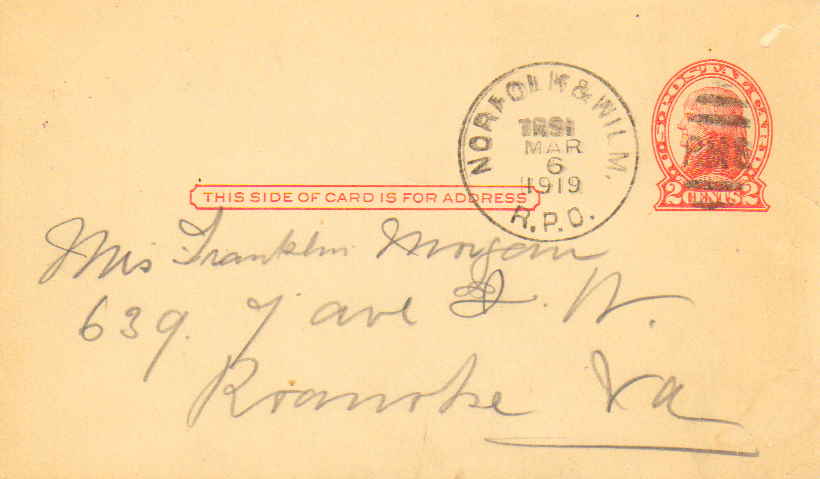 NORFOLK & WILM.
MAR
6
1919
R.P.O.
U.S. POSTAGE
2 CENTS 2
RMS
THIS SIDE OF CARD IS FOR ADDRESS
Mrs Franklin Morgan
639. 7 ave S. W.
Roanoke Va